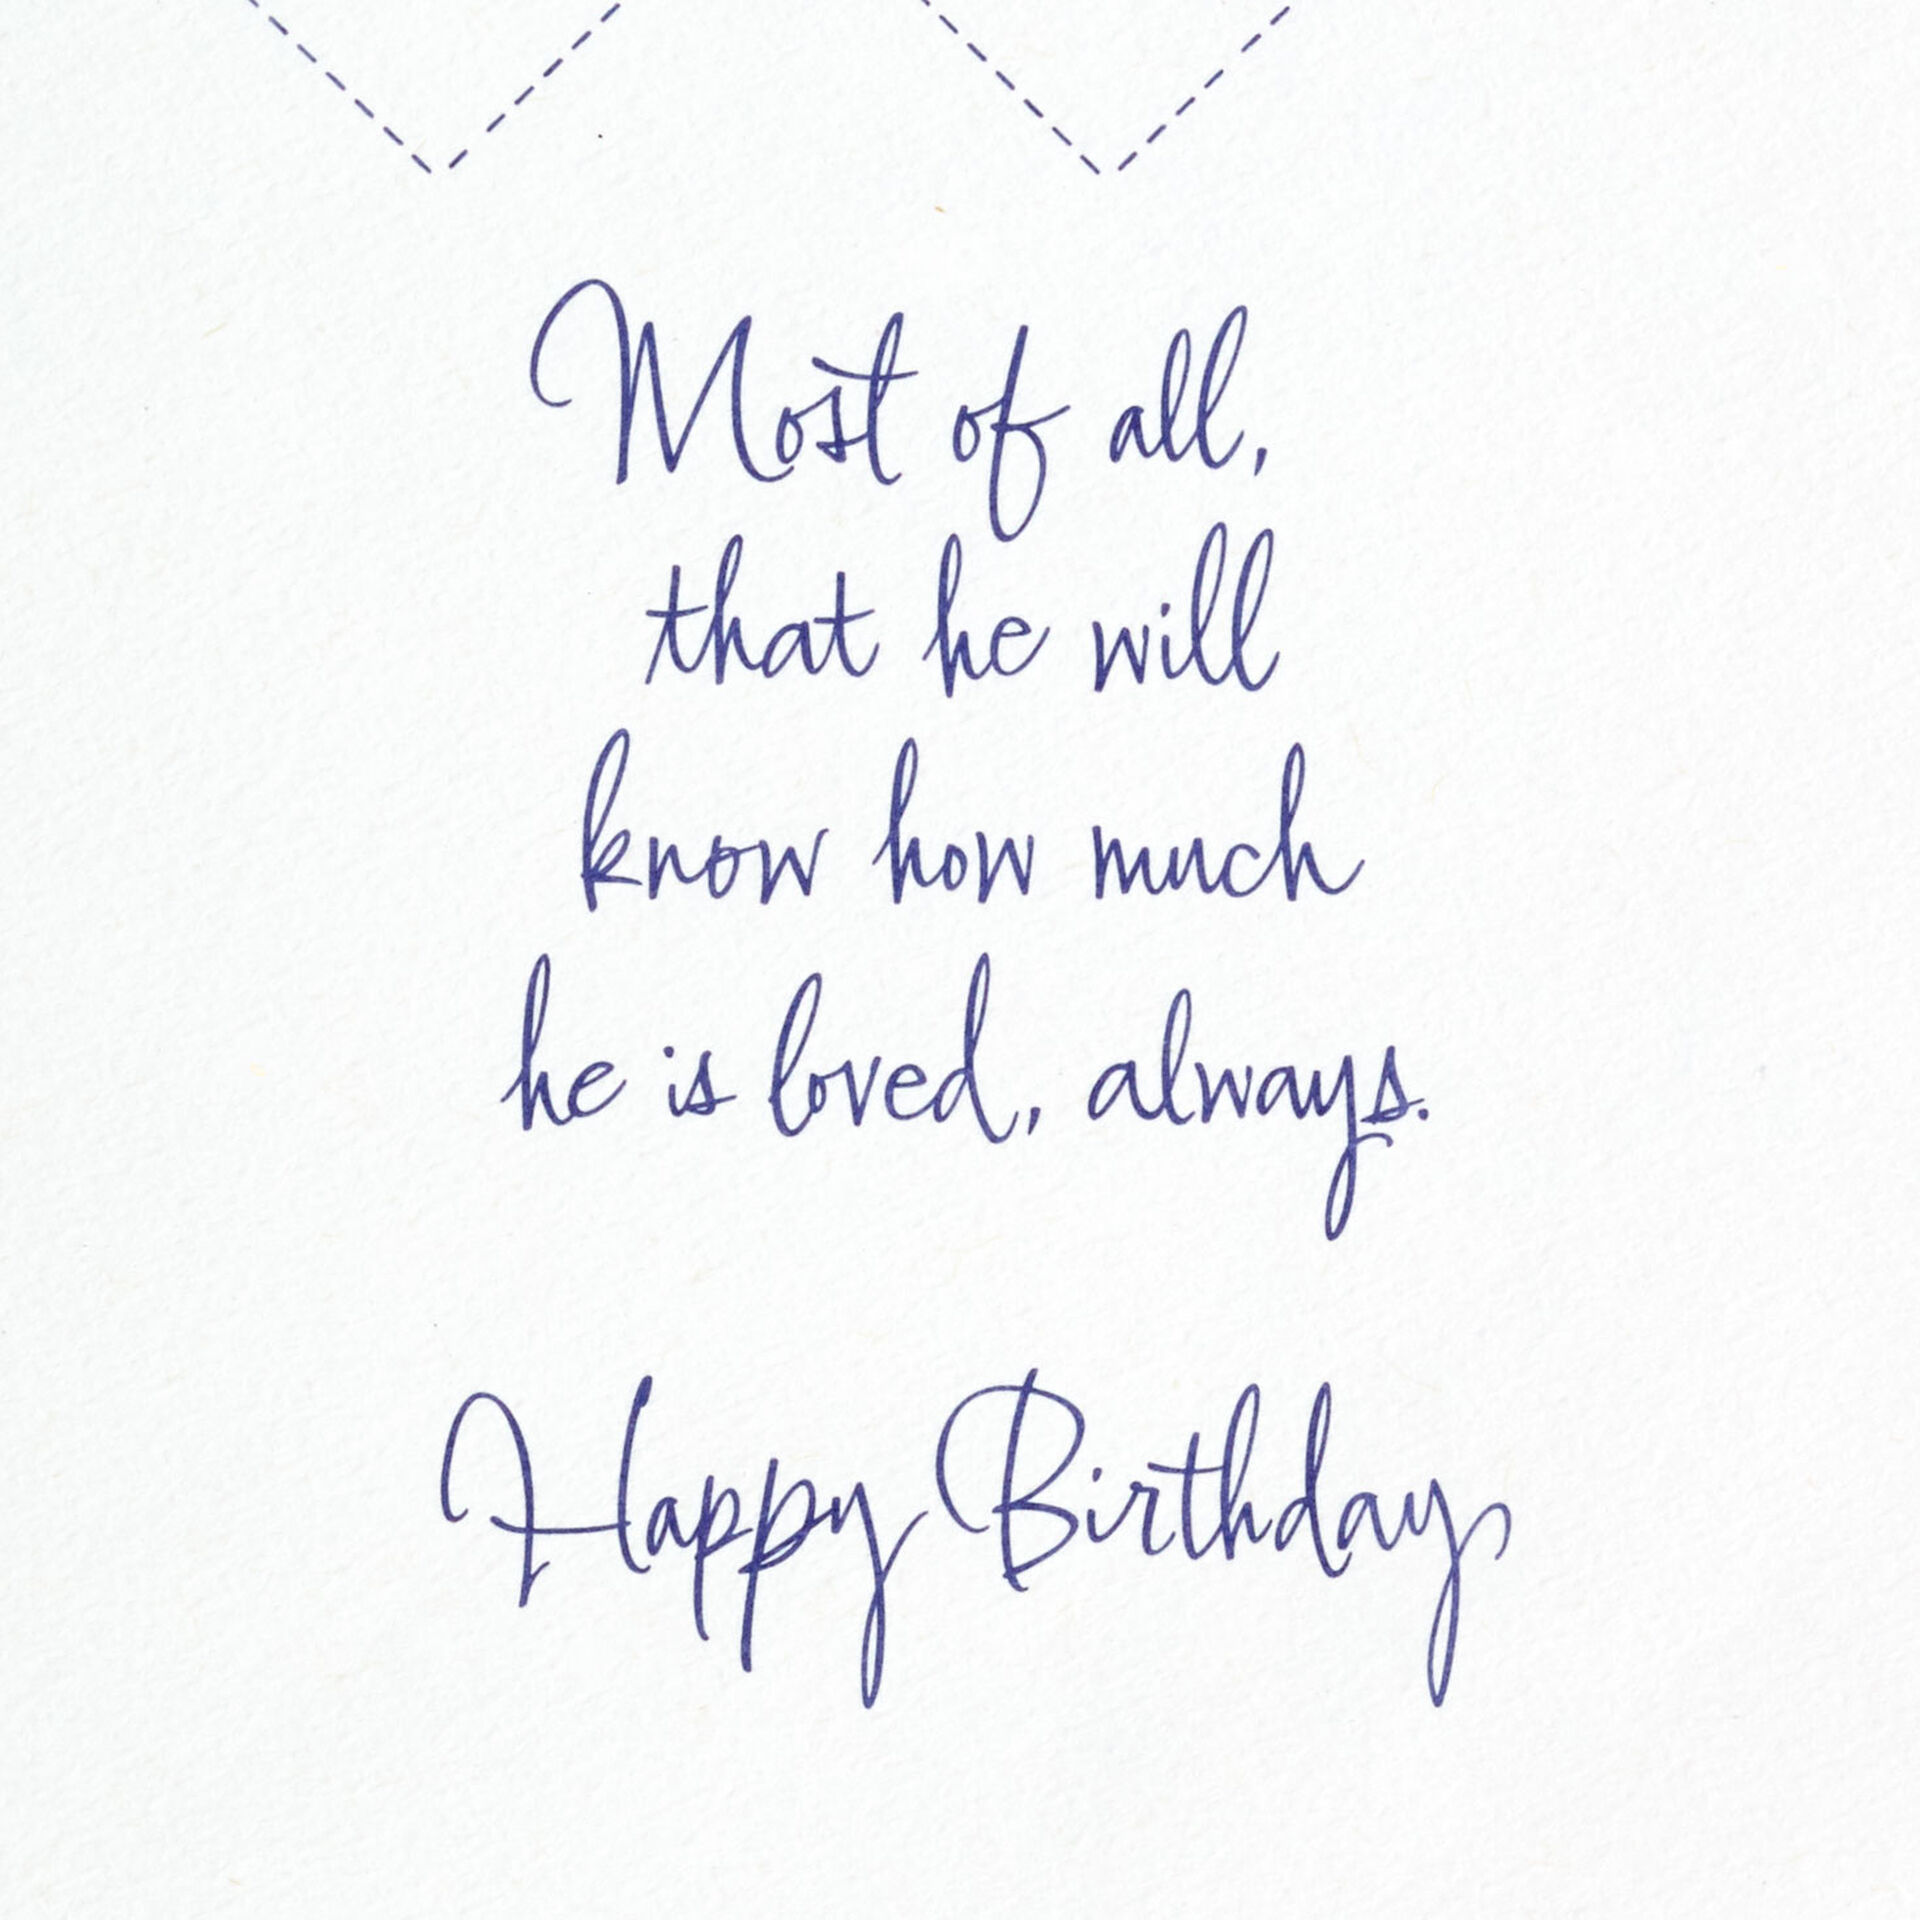 Most of all,
that he will
know how much
he is loved, always.
Happy Birthday